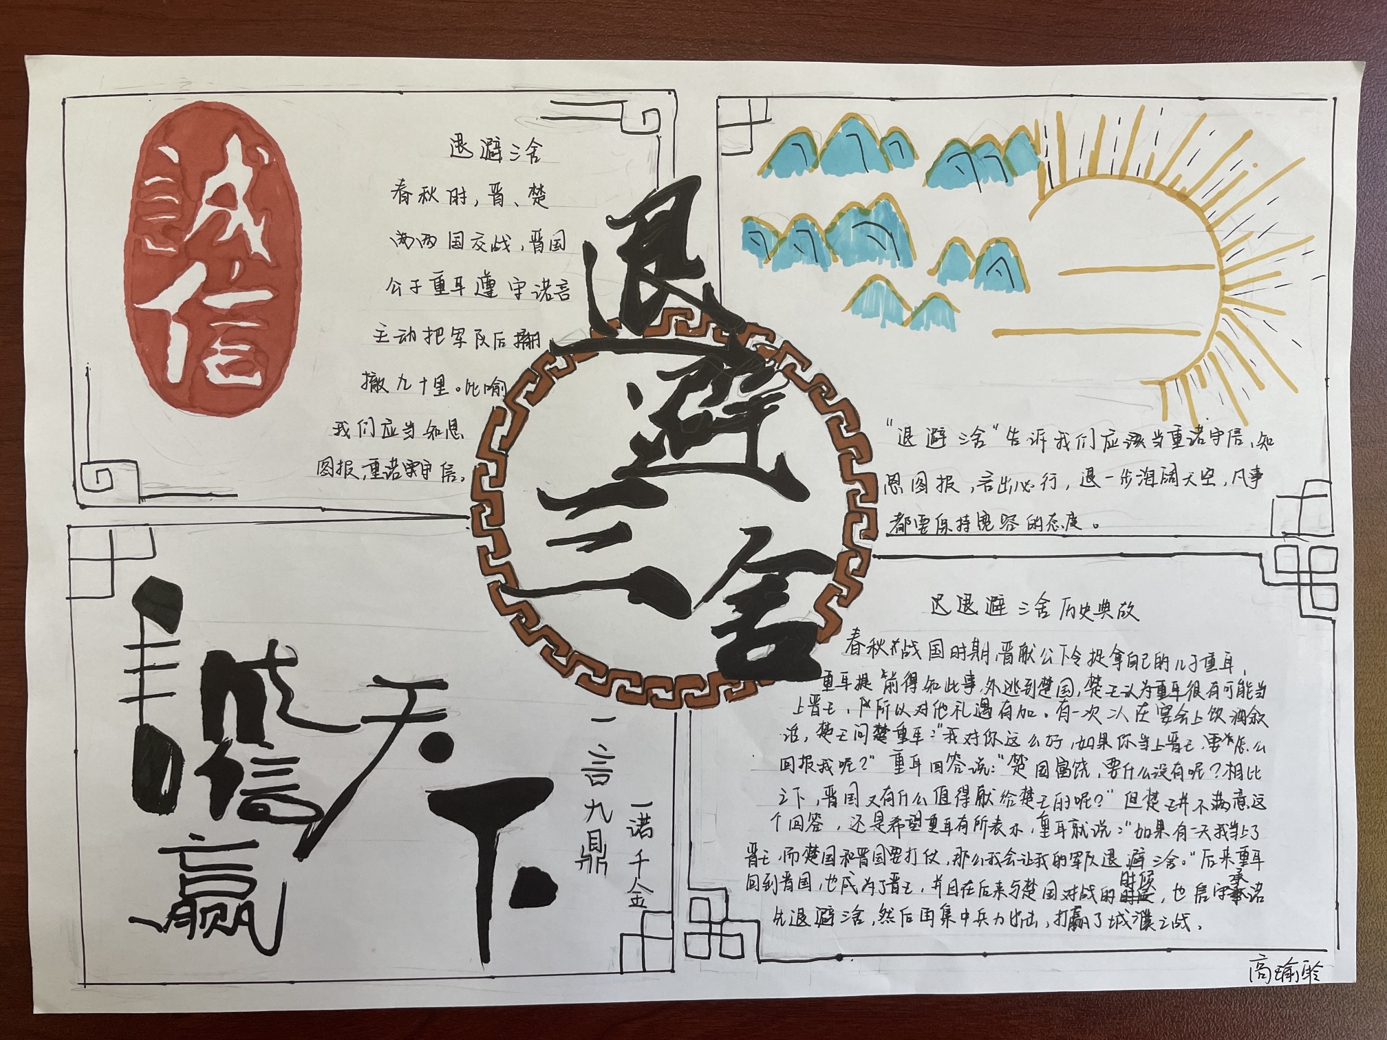 誠信
退避三舍
春秋时，晋、楚
两国交战，晋国
公子重耳遵守诺言
主动把军队后
撤九十里。比喻
我们应当知恩
图报，重诺守信，
退避三舍
“退避三舍”告诉我们应该当重诺守信，知
恩图报，言出必行，退一步海阔天空，凡事
都要保持宽容的态度。
诚信赢天下
一言九鼎
一诺千金
退避三舍历史典故
春秋战国时期，晋献公下令捉拿自己的儿子重耳，
重耳提前得知此事，外逃到楚国，楚王认为重耳很有可能当
上晋王，所以对他礼遇有加。有一次二人在宴会上饮酒叙
谈，楚王问重耳：“我对你这么好，如果你当上晋王，要怎么
回报我呢？”重耳回答说：“楚国富饶，要什么没有呢？相比
之下，晋国又有什么值得献给楚王的呢？”但楚王并不满意这
个回答，还是希望重耳有所表示，重耳就说：“如果有一天我当上了
晋王，而楚国和晋国要打仗，那么我会让我的军队退避三舍。”后来重耳
回到晋国，也成为了晋王，并且在后来与楚国对战的时候，也信守承诺
先退避三舍，然后再集中兵力出击，打赢了城濮之战。
高瑜聆